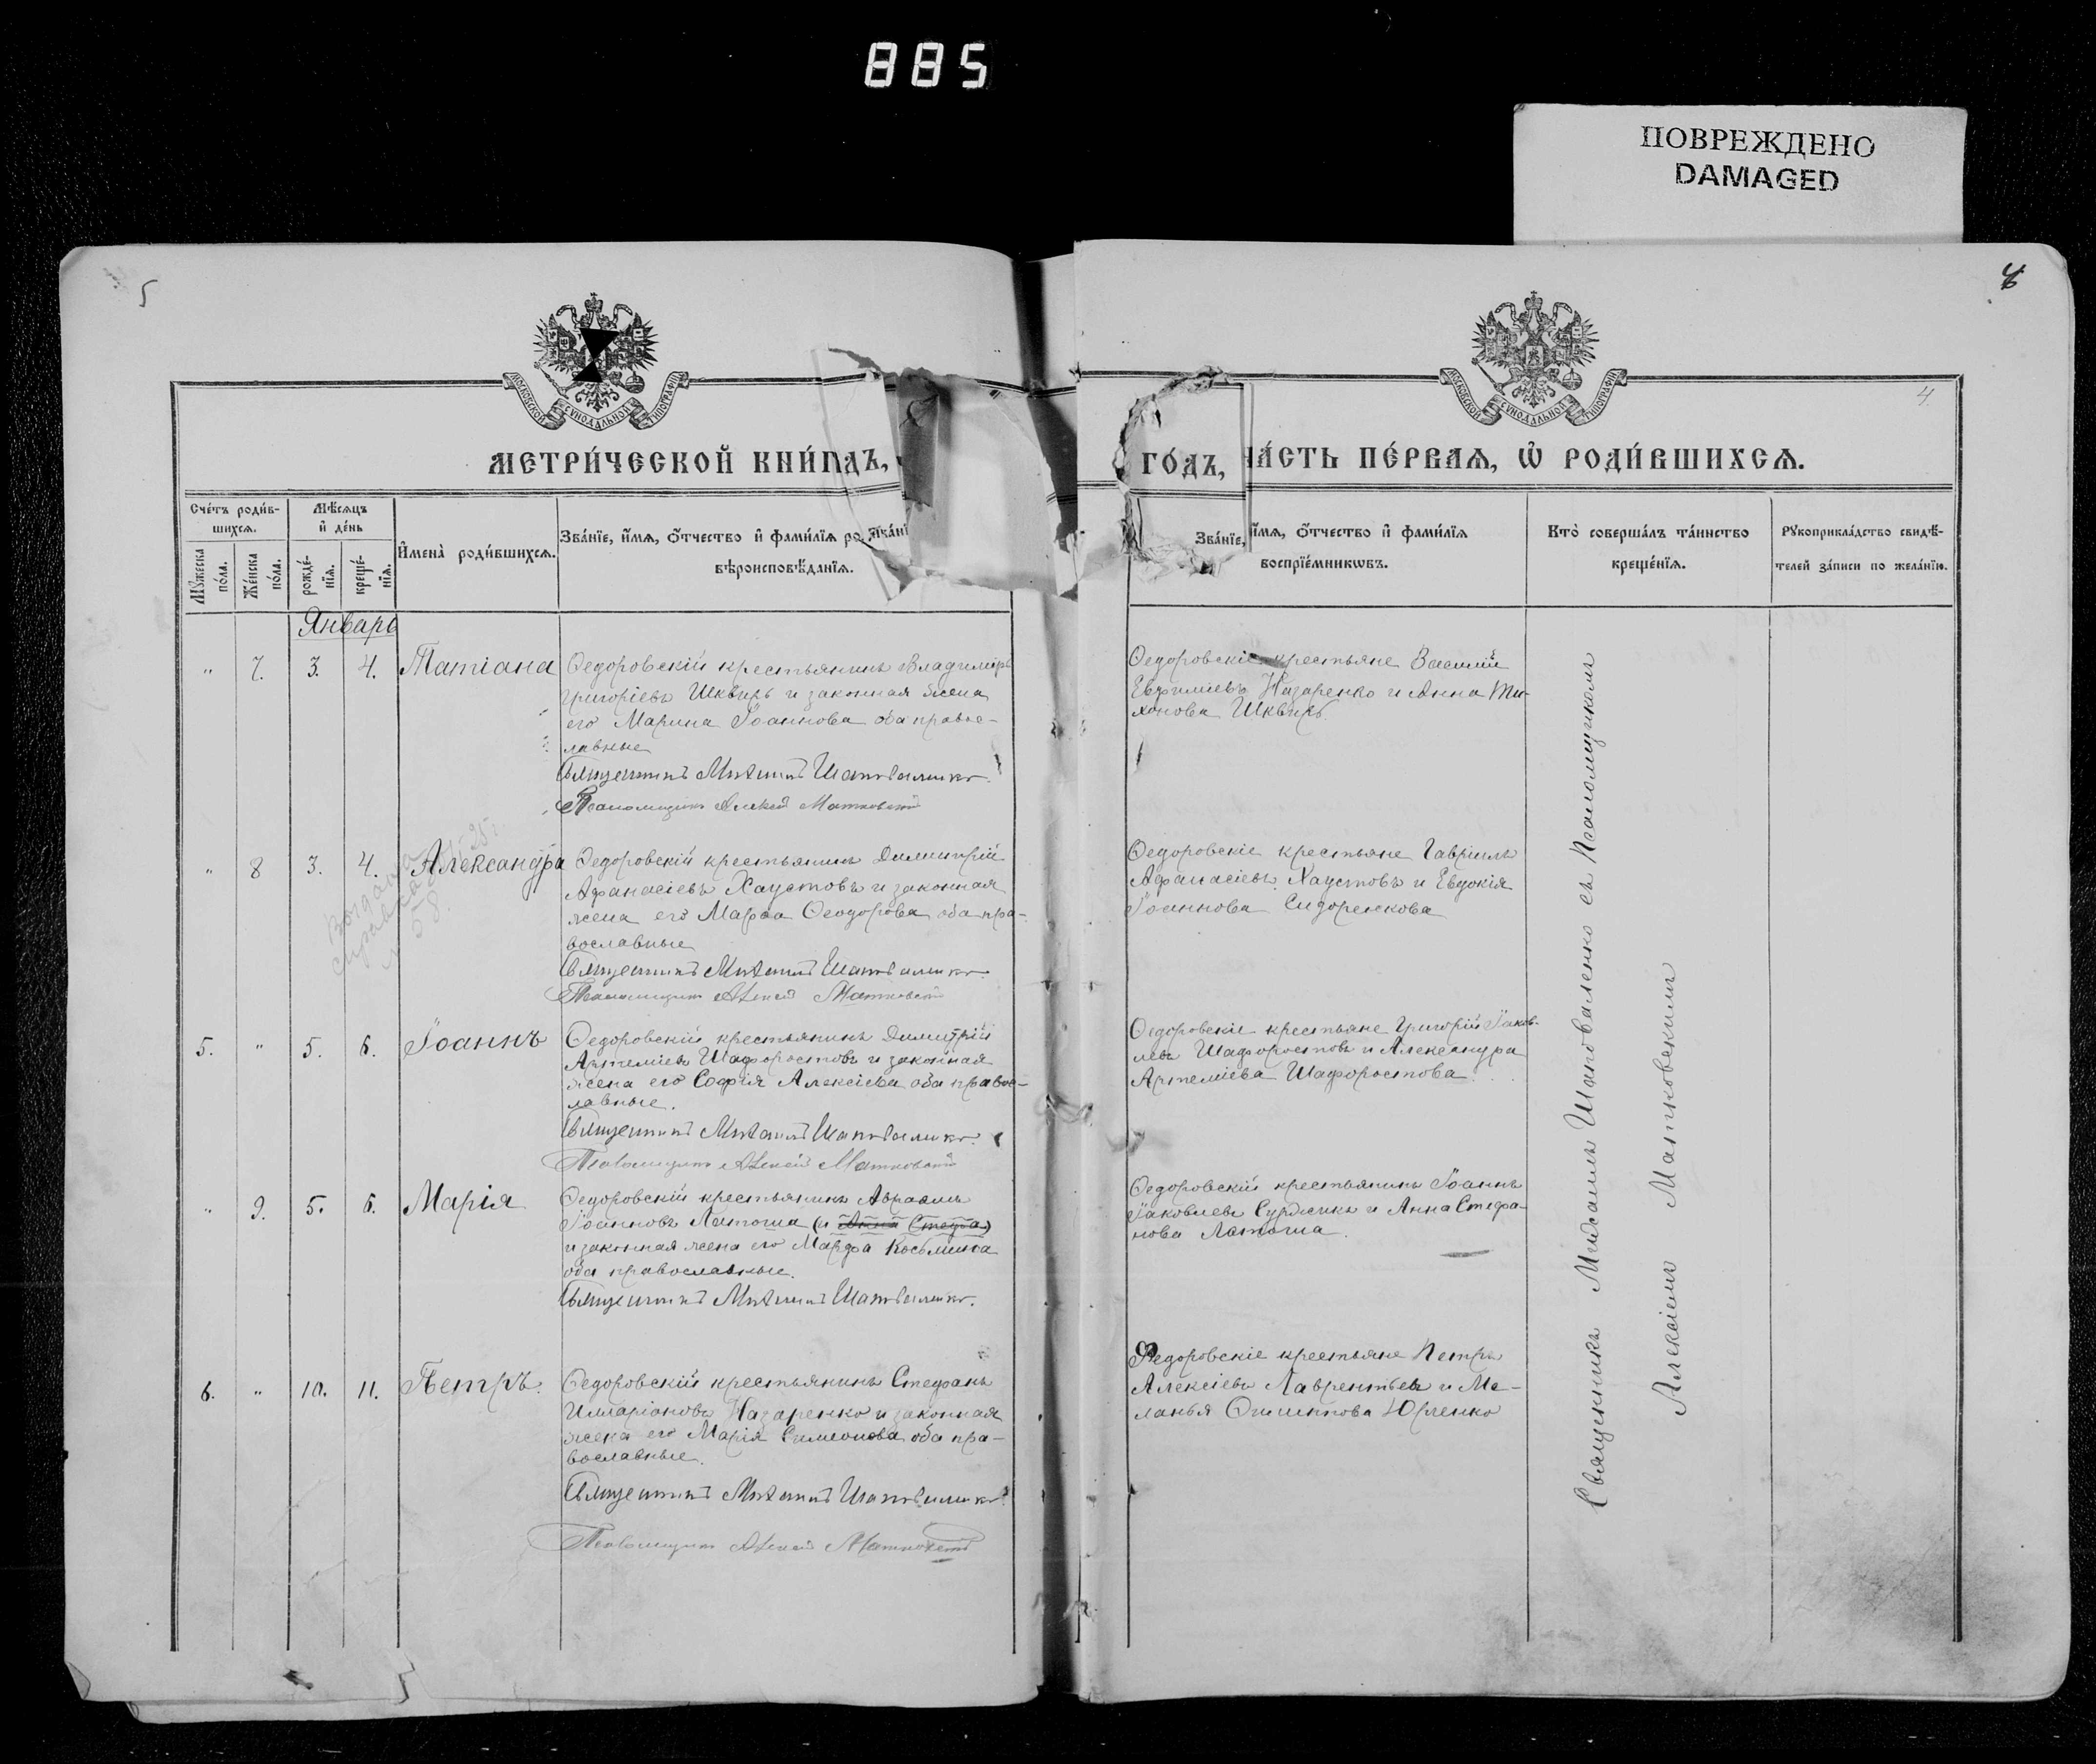 885
ПОВРЕЖДЕНО
DAMAGED
5
4
4
МОСКОВСКОЙ СѴНОДАЛЬНОЙ ТИПОГРАФІИ
МОСКОВСКОЙ СѴНОДАЛЬНОЙ ТИПОГРАФІИ
МЕТРИ́ЧЕСКОЙ КНИ́ГѢ,
ГО́ДЪ, ЧА́СТЬ ПЕ́РВАЯ, Ѡ҆ РОДИ́ВШИХСЯ.
Сче́тъ роди́в-
шихся.
Мꙋжеска по́ла.
Же́нска по́ла.
Мѣ́сяцъ
и҆ де́нь
рожде́-
нїя.
креще́-
нїя.
И҆мена̀ роди́вшихся.
Зва́нїе, и҆́мя, ѻ҆́тчество и҆ фами́лїя ро
вѣроисповѣ́данїя.
Зва́нїе, и҆́мя, ѻ҆́тчество и҆ фами́лїя
воспрїе́мникѡвъ.
Кто̀ соверша́лъ та́инство
креще́нїя.
Рꙋкоприкла́дство свидѣ́-
телей за́писи по жела́нїю.
Январь
" 7. 3. 4. Татіана
Ѳедоровскій крестьянинъ Владиміръ
Григоріевъ Шквирь и законная жена
его Марина Іоаннова оба правос-
лавные
Священникъ Михаилъ Шаповаленко.
Псаломщикъ Алексій Матковскій
Ѳедоровскіе крестьяне Василій
Евфиміевъ Назаренко и Анна Ти-
хонова Шквирь.
" 8 3. 4. Александра
Ѳедоровскій крестьянинъ Димитрій
Афанасіевъ Хаустовъ и законная
жена его Марѳа Ѳеодорова оба пра-
вославные
Священникъ Михаилъ Шаповаленко.
Псаломщикъ Алексій Матковскій
Ѳедоровскіе крестьяне Гавріилъ
Афанасіевъ Хаустовъ и Евдокія
Іоаннова Сидоренкова
5. " 5. 6. Іоаннъ
Ѳедоровскій крестьянинъ Димитрій
Артеміевъ Шафоростовъ и законная
жена его Софія Алексіева оба правос-
лавные.
Священникъ Михаилъ Шаповаленко.
Псаломщикъ Алексій Матковскій
Ѳедоровскіе крестьяне Григорій Іаков-
левъ Шафоростовъ и Александра
Артеміева Шафоростова.
" 9. 5. 6. Марія
Ѳедоровскій крестьянинъ Авраамъ
Іоанновъ Латоша (и Анна Стефа)
и законная жена его Марфа Косьмина
оба православные.
Священникъ Михаилъ Шаповаленко.
Ѳедоровскій крестьянинъ Іоаннъ
Іаковлевъ и Анна Стефа-
нова Латоша.
6. " 10. 11. Петръ.
Ѳедоровскій крестьянинъ Стефанъ
Илларіоновъ Назаренко и законная
жена его Марія Симеонова оба пра-
вославные.
Священникъ Михаилъ Шаповаленко
Псаломщикъ Алексій Матковскій
Ѳедоровскіе крестьяне Петръ
Алексіевъ Лаврентьевъ и Ме-
ланья Юрченко
Священникъ Михаилъ Шаповаленко съ Псаломщикомъ
Алексіемъ Матковскимъ